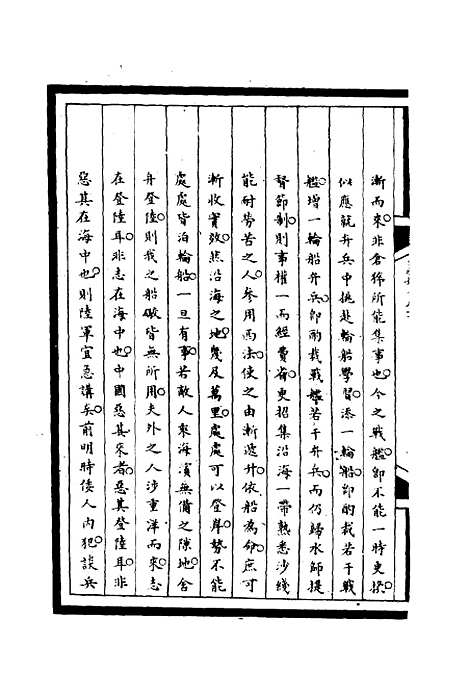 漸而來非倉猝所能集事也今之戰艦卽不能一時更換
似應就弁兵中挑赴輪船學習添一輪船卽酌裁若干戰
艦增一輪船弁兵卽酌裁戰艦若干弁兵而仍歸水師提
督節制則事權一而經費省更招集沿海一帶熟悉沙綫
能耐勞苦之人參用西法使之由漸遞升依船為命庶可
漸收實效然沿海之地幾及萬里處處可以登岸勢不能
處處皆泊輪船一旦有事若敵人來海濱無備之隙地舍
舟登陸則我之船礮皆無所用夫外之人涉重洋而來志
在登陸耳非志在海中也中國惡其來者惡其登陸耳非
惡其在海中也則陸軍宜急講矣前明時倭人內犯談兵